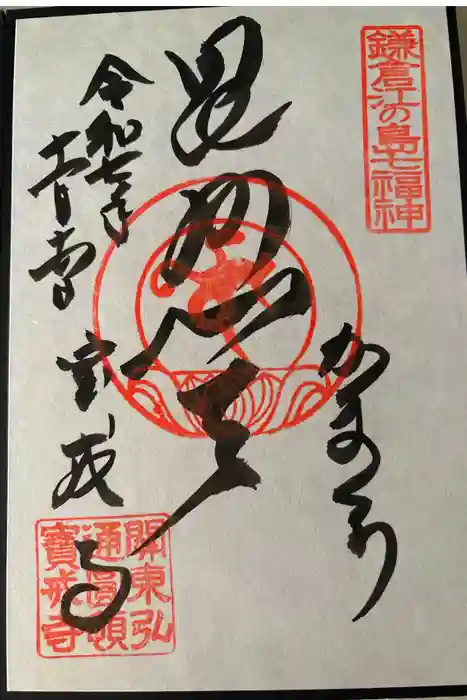 鎌倉江の島七福神
かまくら
毘沙門天
令和七年
宝戒寺
關東弘
通圓頓
寶戒寺